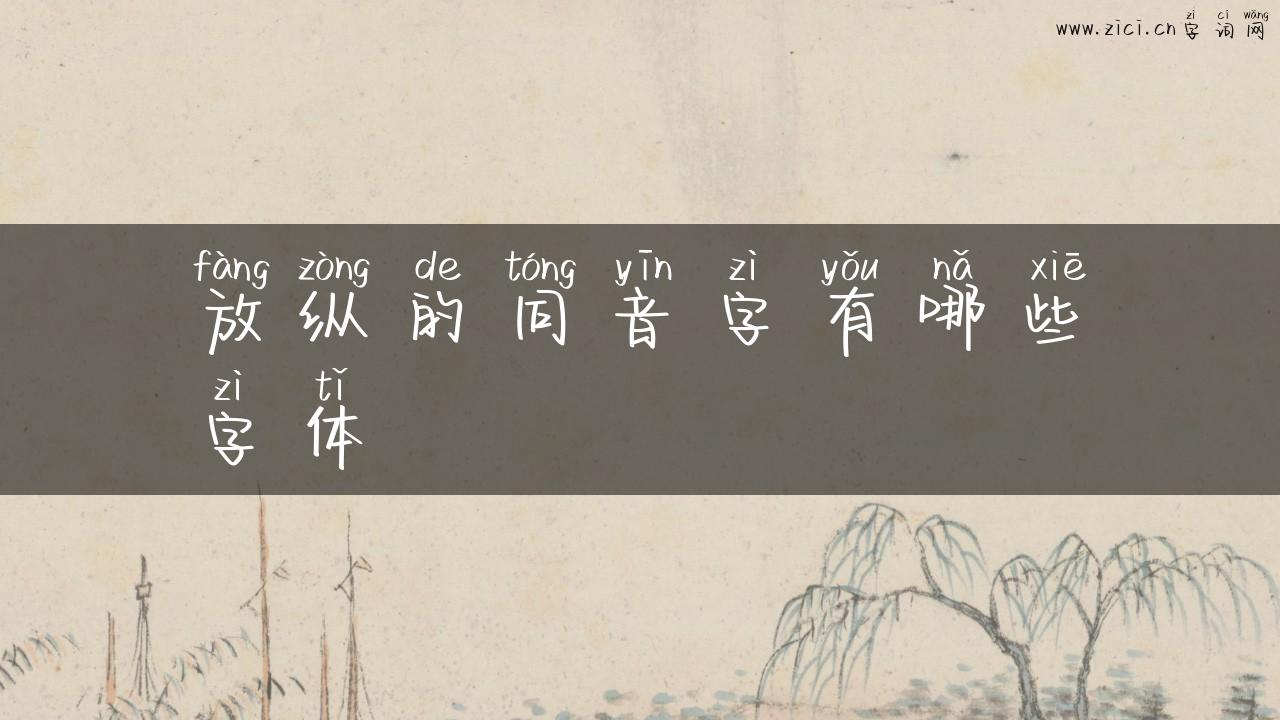 zì cí wǎng
www.zici.cn 字词网
fàng zòng de tóng yīn zì yǒu nǎ xiē
放纵的同音字有哪些
zì tǐ
字体